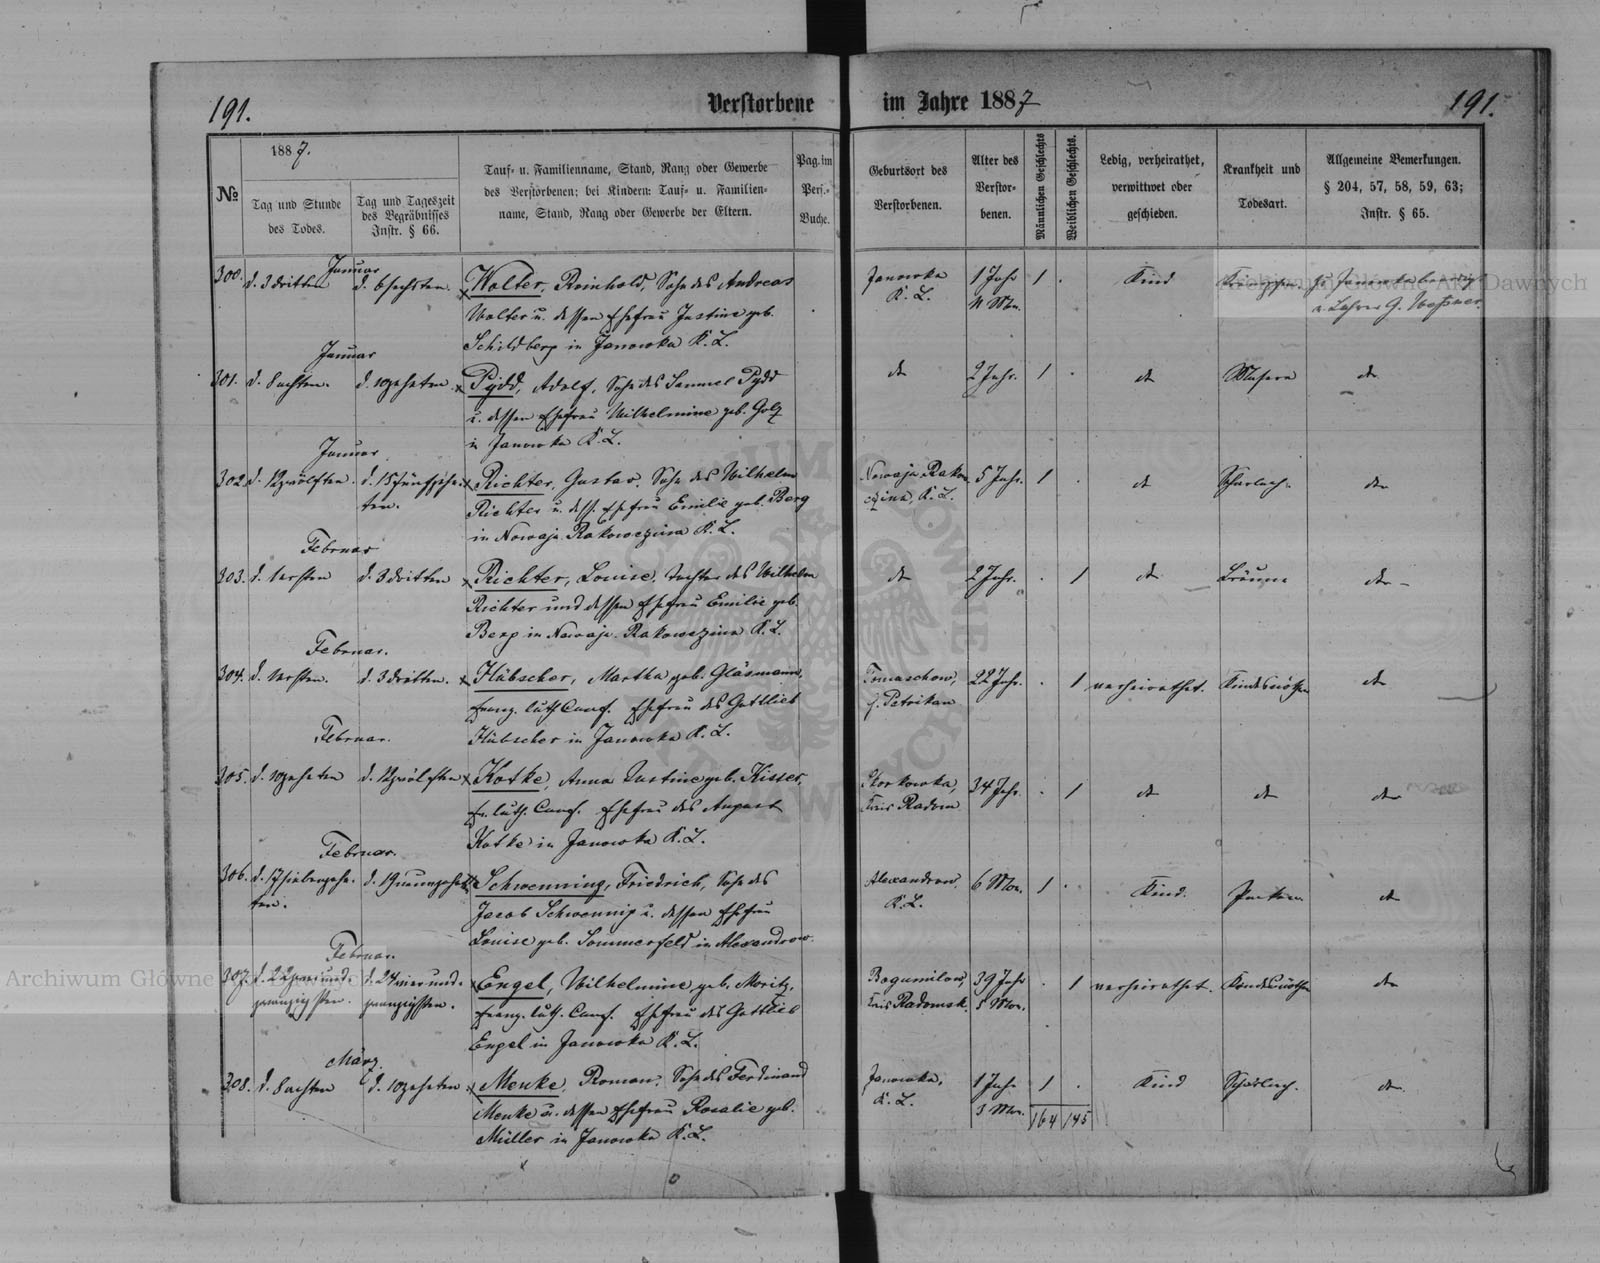 191.
Verstorbene im Jahre 1887
191.
№
1887.
Tag und Stunde des Todes.
Tag und Tageszeit des Begräbnisses Instr. § 66.
Tauf- u. Familienname, Stand, Rang oder Gewerbe
des Verstorbenen; bei Kindern: Tauf- u. Familien-
name, Stand, Rang oder Gewerbe der Eltern.
Pag. im
Pers.-
Buche.
Geburtsort des
Verstorbenen.
Alter des
Verstor-
benen.
Männlichen Geschlechts
Weiblichen Geschlechts.
Ledig, verheirathet,
verwittwet oder
geschieden.
Krankheit und
Todesart.
Allgemeine Bemerkungen.
§ 204, 57, 58, 59, 63;
Instr. § 65.
Januar
300. d. 3 dritten d. 6 sechsten. Walter, Reinhold, Sohn des Andreas Janowka 1 Jahr 1 . Kind
Walter u. dessen Ehefrau Justine geb. K. L. Mon. u. Lehrer G.
Schildberg in Janowka K. L.
Januar
301. d. 8 achten. d. 10 zehnten. Pydd, Adolf, Sohn des Samuel Pydd do 2 Jahr. 1 . do Masern do
u. dessen Ehefrau Wilhelmine geb. Golz
in Janowka K. L.
Januar
302. d. 12 zwölften. d. 15 fünfzehn- Richter, Gustav, Sohn des Wilhelm Nowaja Rako- 5 Jahr. 1 . do Scharlach. do
ten. Richter u. dess. Ehefrau Emilie geb. Berg czina, K. L.
in Nowaja Rakowczina K. L.
Februar
303. d. 1 ersten d. 3 dritten Richter, Louise, Tochter des Wilhelm do 2 Jahr. . 1 do Bräune do
Richter und dessen Ehefrau Emilie geb.
Berg in Nowaja Rakowczina K. L.
Februar.
304. d. 1 ersten. d. 3 dritten. Hübscher, Martha geb. Gläsmann, Tomaschow, 22 Jahr. . 1 verheirathet. Kindesnöthen do
evang. luth. Conf. Ehefrau des Gottlieb G. Petrikau
Hübscher in Janowka K. L.
Februar.
305. d. 10 zehnten d. 12 zwölften Kotke, Anna Justine geb. Kisser, 34 Jahr. . 1 do do do
ev. luth. Conf. Ehefrau des August Kreis Radom
Kotke in Janowka K. L.
Februar.
306. d. 17 siebenzehn- d. 19 neunzehnten Schwenning, Friedrich, Sohn des Alexandrow 6 Mon. 1 . Kind. Pocken do
ten. Jacob Schwenning u. dessen Ehefrau K. L.
Louise geb. Sommerfeld in Alexandrow.
Februar.
307. d. 22 zwei und- d. 24 vier und- Engel, Wilhelmine geb. Moritz, Bogumilow, 39 Jahr . 1 verheirathet. Kindesnöthen do
zwanzigsten. zwanzigsten. evang. luth. Conf. Ehefrau des Gottlieb Kreis Radomsk. Mon.
Engel in Janowka K. L.
März.
308. d. 8 achten d. 10 zehnten. Menke, Roman, Sohn des Ferdinand Janowka, 1 Jahr 1 . Kind Scharlach. do
Menke u. dessen Ehefrau Rosalie geb. K. L. 3 Mon. 164 145
Müller in Janowka K. L.
Archiwum Główne Akt Dawnych
Archiwum Główne Akt Dawnych